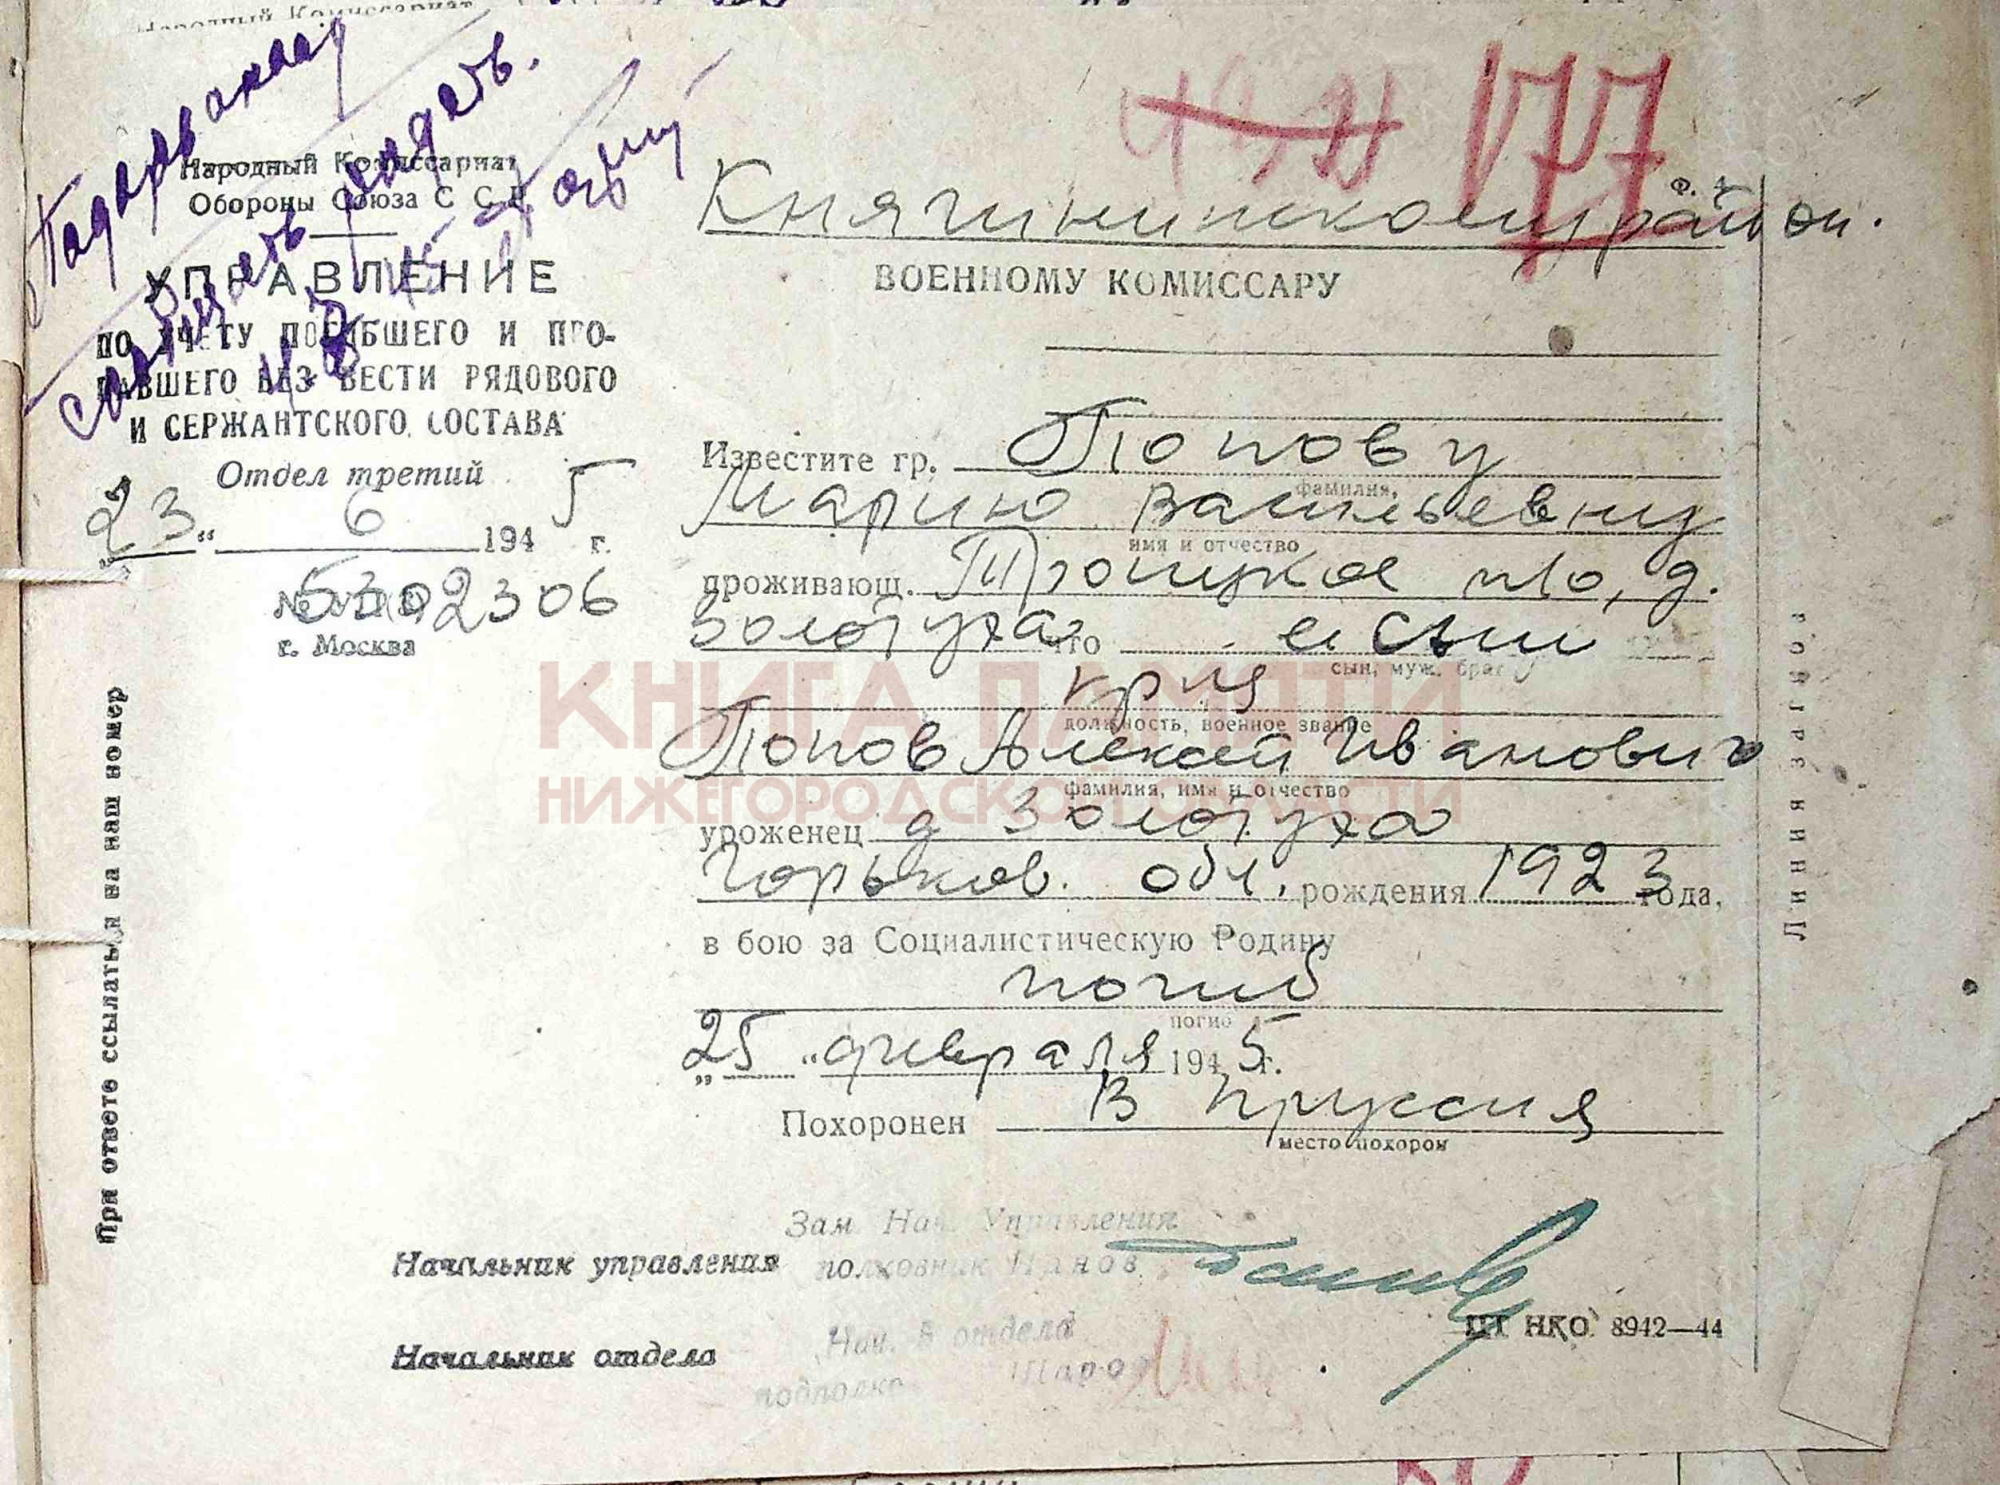 Народный Комиссариат
177
Народный Комиссариат
Обороны Союза С С Р
УПРАВЛЕНИЕ
ПО УЧЕТУ ПОГИБШЕГО И ПРО-
ПАВШЕГО БЕЗ ВЕСТИ РЯДОВОГО
И СЕРЖАНТСКОГО СОСТАВА
Отдел третий
„23“ 6 1945 г.
№ 5302306
г. Москва
При ответе ссылаться на наш номер
Ф. 4
Княгининскому район.
ВОЕННОМУ КОМИССАРУ
Известите гр. Попову
фамилия,
Марию Васильевну
имя и отчество
проживающ. Троицкое п/о, д.
Золотуха что её сын
сын, муж, брат
кр-ц
должность, военное звание
Попов Алексей Иванович
фамилия, имя и отчество
уроженец д Золотуха
Горьков. обл. рождения 1923 года,
в бою за Социалистическую Родину
погиб
погиб
„25“ февраля 1945 г.
Похоронен В Пруссия
место похорон
Линия загиба
Зам. Нач. Управления
Начальник управления полковник Панов
Нач. 3 отдела
Начальник отдела
ЦТ НКО 8942—44
КНИГА ПАМЯТИ
НИЖЕГОРОДСКОЙ ОБЛАСТИ